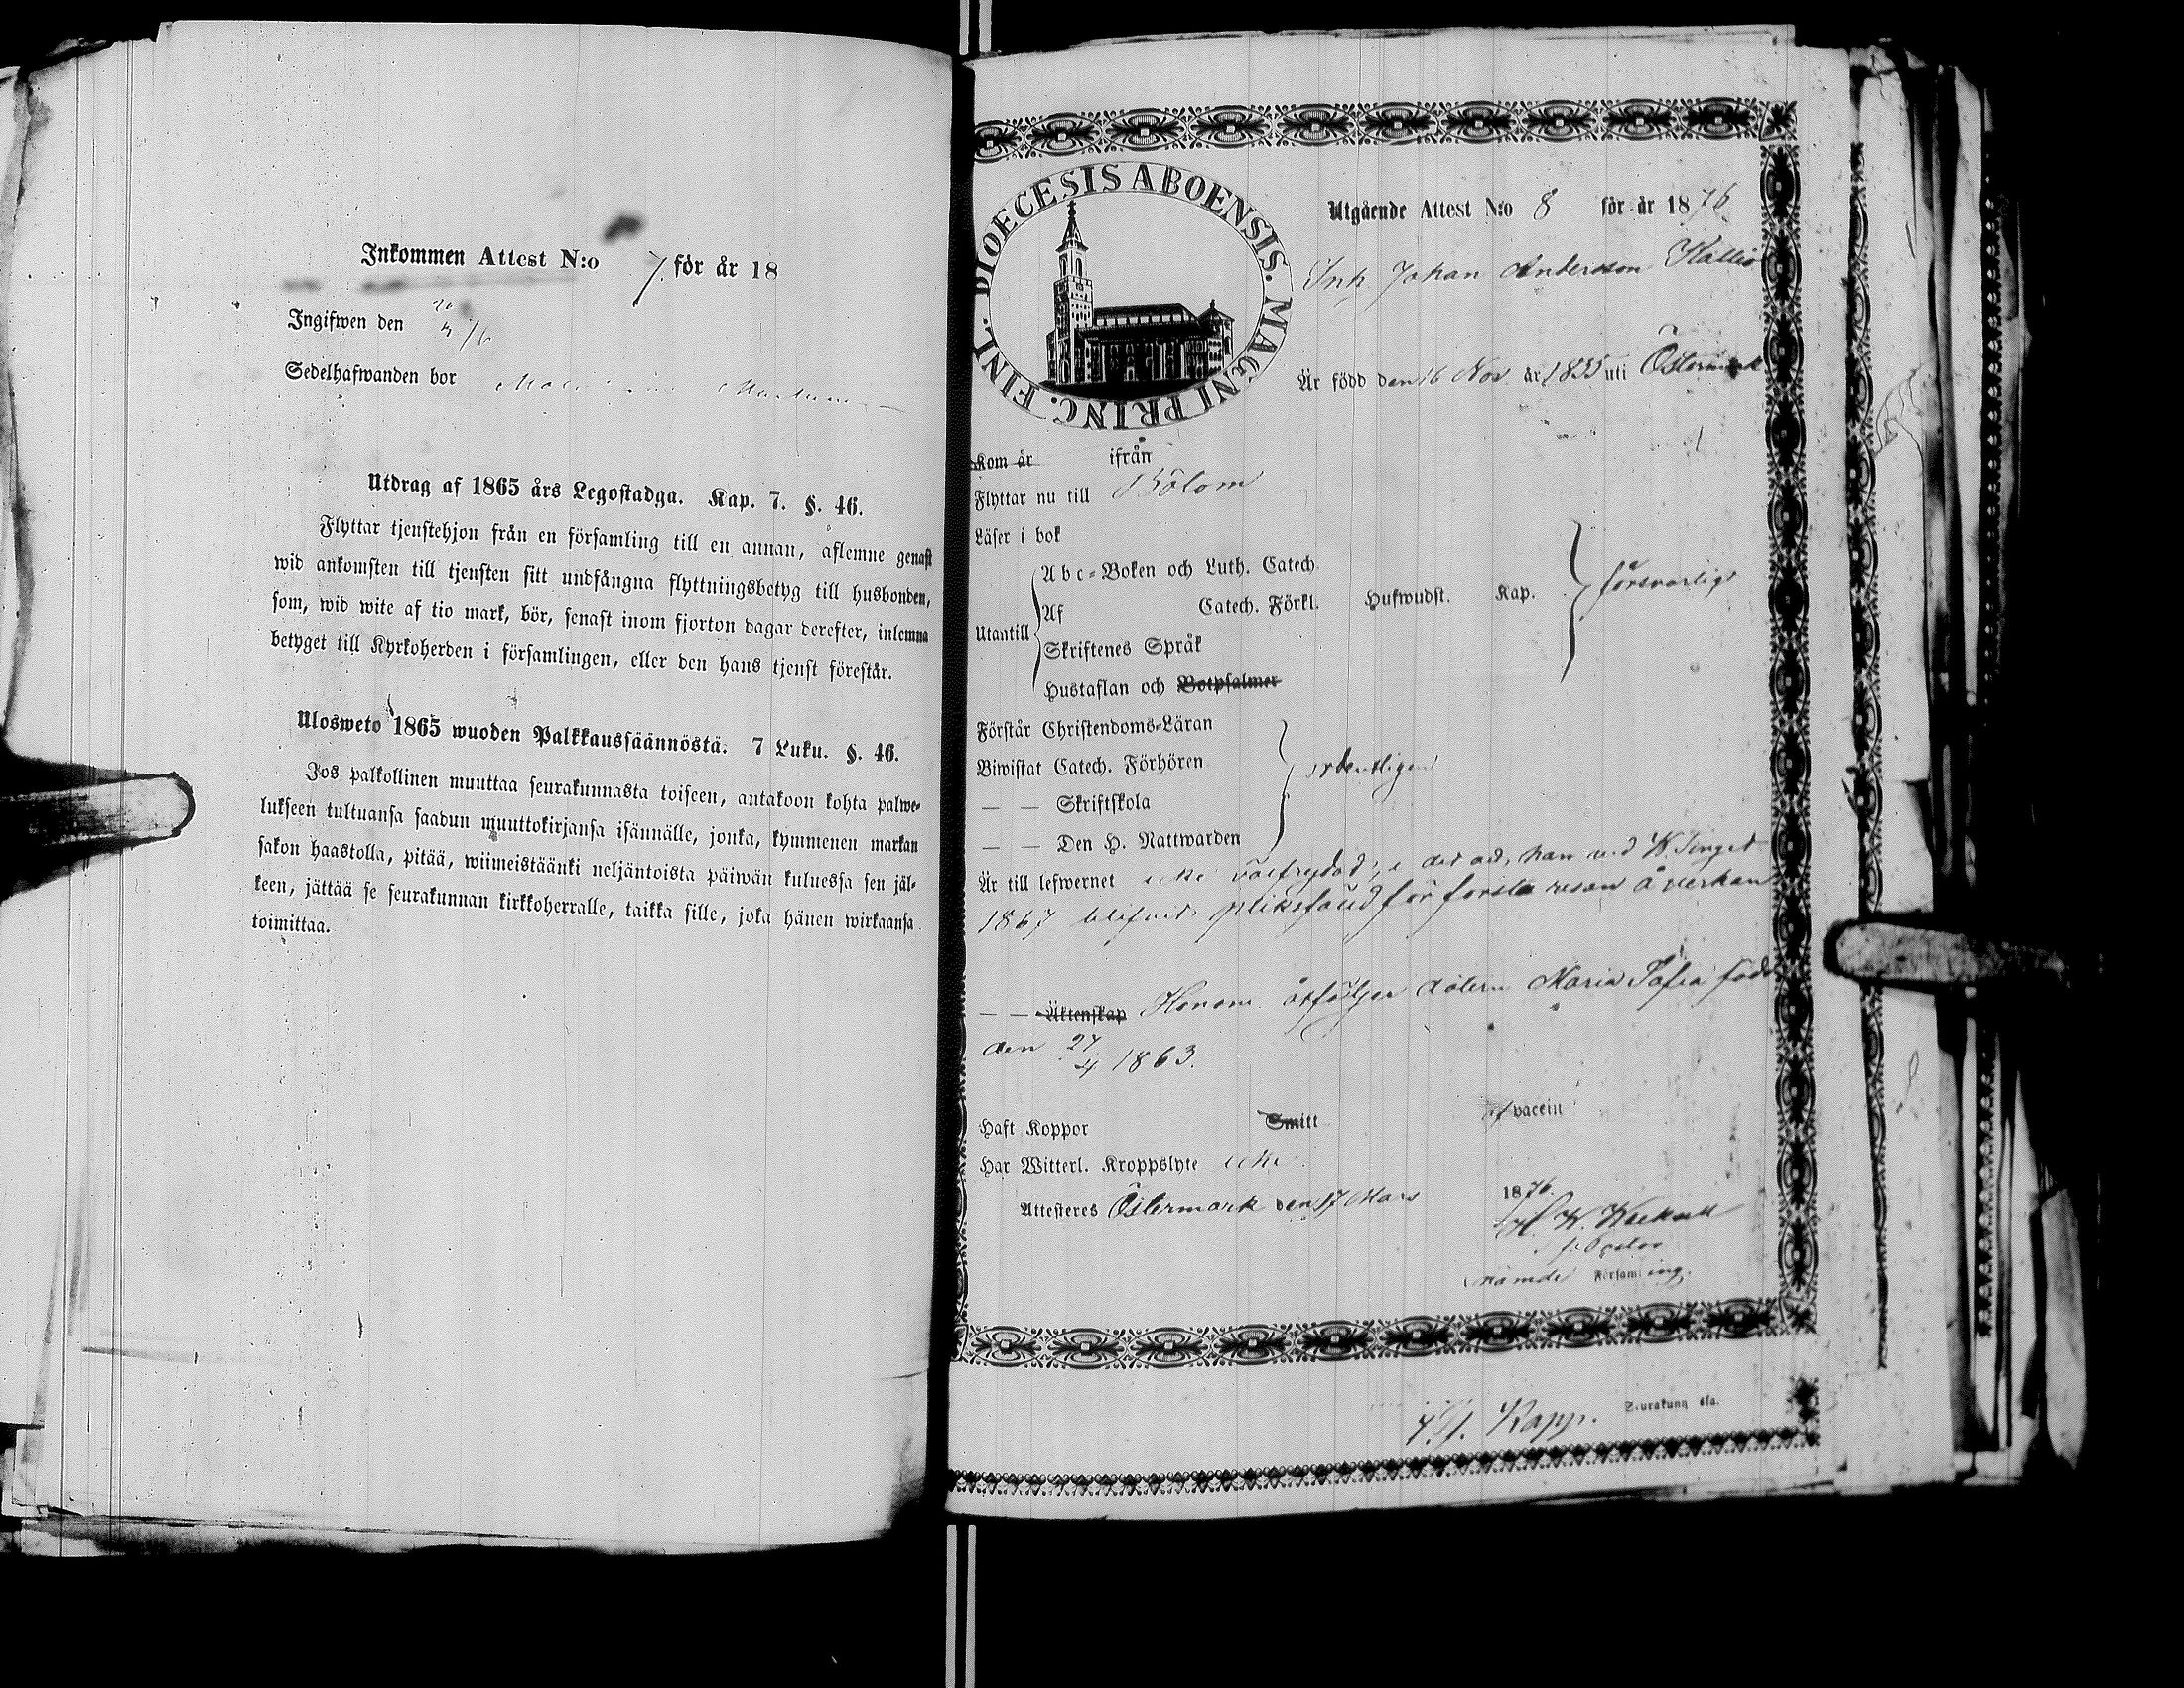 Inkommen Attest N:o 7. för år 18
Ingifwen den 20/4 76
Sedelhafwanden bor
Utdrag af 1865 års Legostadga. Kap. 7. §. 46.
Flyttar tjenstehjon från en församling till en annan, aflemne genast
wid ankomsten till tjensten sitt undfångna flyttningsbetyg till husbonden,
som, wid wite af tio mark, bör, senast inom fjorton dagar derefter, inlemna
betyget till Kyrkoherden i församlingen, eller den hans tjenst förestår.
Ulosweto 1865 wuoden Palkkaussäännöstä. 7 Luku. §. 46.
Jos palkollinen muuttaa seurakunnasta toiseen, antakoon kohta palwe-
lukseen tultuansa saadun muuttokirjansa isännälle, jonka, kymmenen markan
sakon haastolla, pitää, wiimeistäänki neljäntoista päiwän kuluessa sen jäl-
keen, jättää se seurakunnan kirkkoherralle, taikka sille, joka hänen wirkaansa
toimittaa.
DIOECESIS ABOENSIS. MAGNI PRINC. FINL.
Utgående Attest N:o 8 för år 1876
Inh Johan Andersson Kallio
Är född den 16 Nov år 1835 uti Östermark
Kom år ifrån
Flyttar nu till Bötom
Läser i bok
Utantill
Abc-Boken och Luth. Catech.
Af Catech. Förkl. Hufwudst. Kap.
försvarligt
Skriftenes Språk
Hustaflan och Botpsalmer
Förstår Christendoms-Läran
Biwistat Catech. Förhören
ordentligen
— — Skriftskola
— — Den H. Nattwarden
Är till lefwernet icke välfrejdad, i det att han vid W. Tinget
1867 blifvit pliktfäld för första resan åverkan
— — Äktenskap Honom åtföljer dottern Maria Sofia född
den 27/4 1863.
Haft Koppor Smitt af vaccin
Har Witterl. Kroppslyte icke
Attesteres Östermark den 17 Mars 1876.
K. W.
Pastor
nämde Församling.
Kapp. Seurakunnasa.